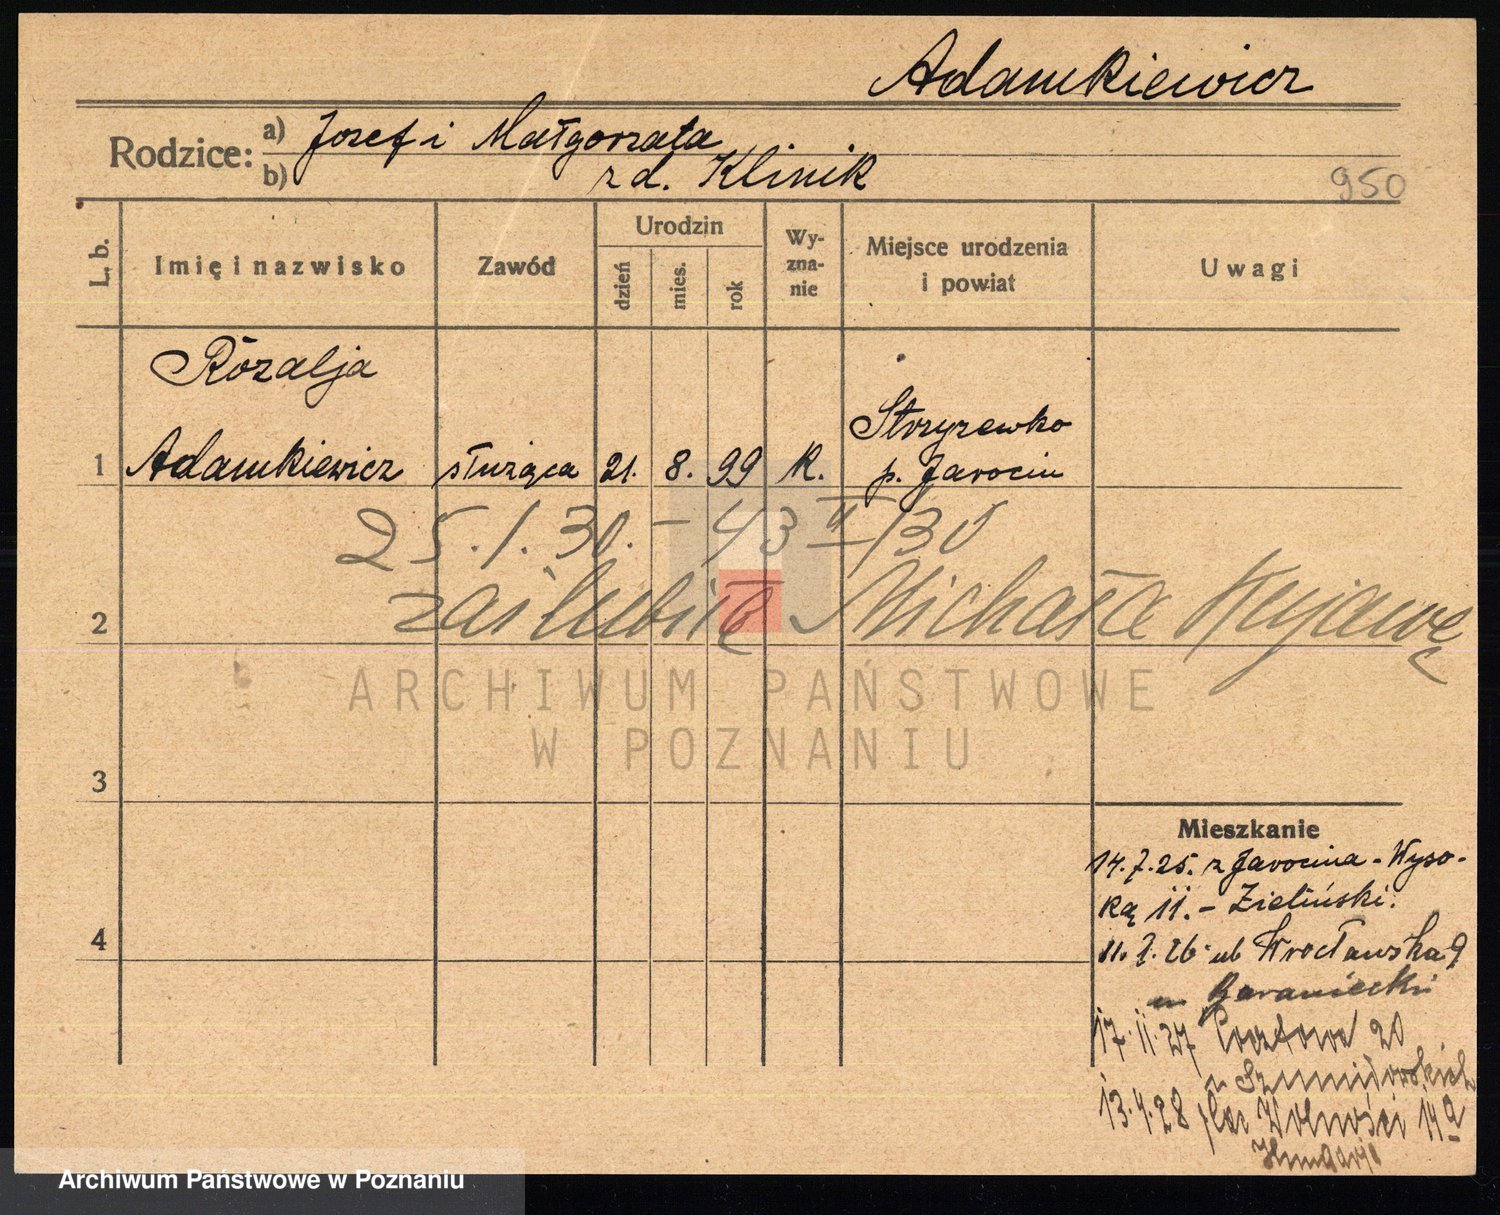 Adamkiewicz
Rodzice: a) Jozef i Małgorzata
b) zd. Klinik
950
L. b.
Imię i nazwisko
Zawód
Urodzin
dzień
mies.
rok
Wy-
zna-
nie
Miejsce urodzenia
i powiat
Uwagi
Rózalja
1 Adamkiewicz służąca 21. 8. 99 K. Strzyżewko
p. Jarocin
25.1.30. - 43 II/30
2 zaślubiła Michała Kujawę
ARCHIWUM PAŃSTWOWE
W POZNANIU
3
4
Mieszkanie
14.7.25. z Jarocina - Wyso-
ką 11. - Zieliński.
11.7.26 ul Wrocławska 9
Baraniecki
17.11.27 Pocztowa 20
u Szumiłowskich
13.4.28 plac Wolności 14a
Archiwum Państwowe w Poznaniu